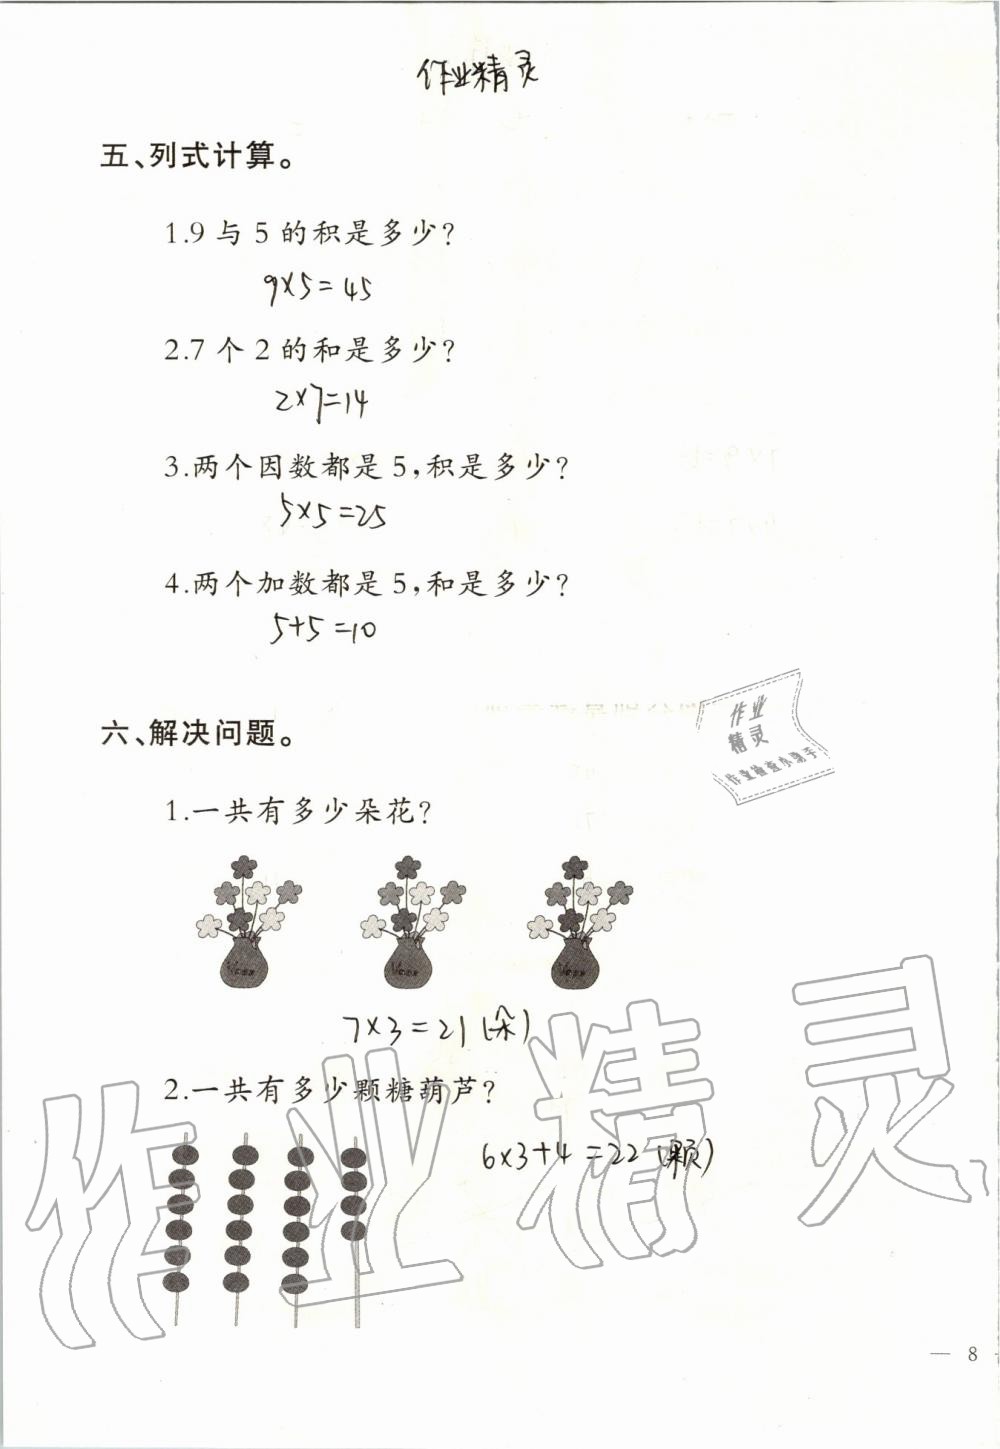 作业精灵
五、列式计算。
1.9 与 5 的积是多少?
9×5=45
2.7 个 2 的和是多少?
2×7=14
3.两个因数都是 5,积是多少?
5×5=25
4.两个加数都是 5,和是多少?
5+5=10
作业
精灵
作业检查小助手
六、解决问题。
1.一共有多少朵花?
7×3=21(朵)
2.一共有多少颗糖葫芦?
6×3+4=22(颗)
作业精灵
— 8